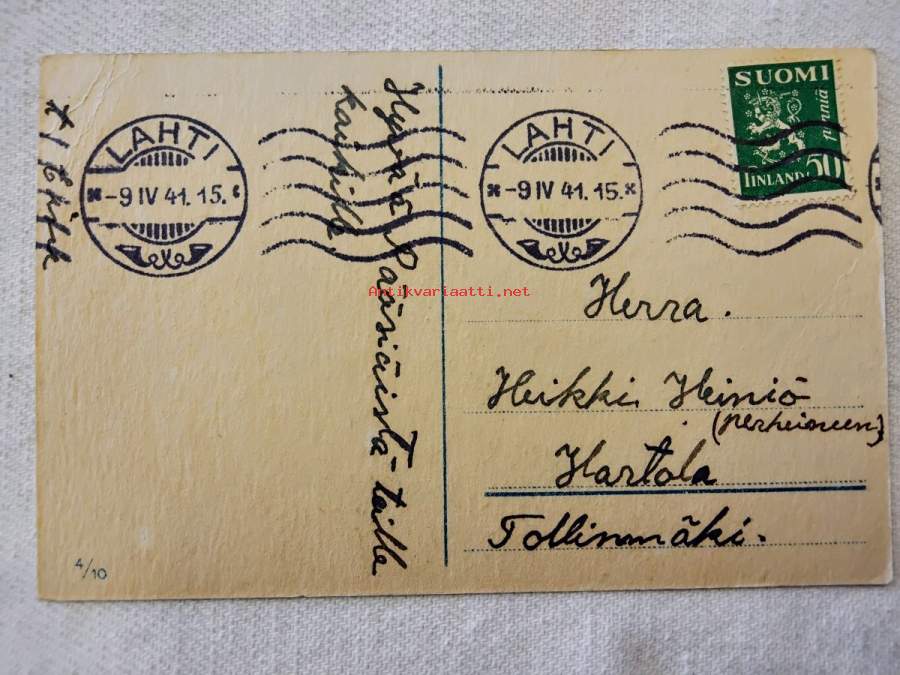 Hyvää Pääsiäistä teille
kaikille
LAHTI
-9 IV 41.15.
LAHTI
-9 IV 41.15.
SUOMI
FINLAND
50
Antikvariaatti.net
Herra.
Heikki Heiniö
(perheineen)
Hartola
Tollinmäki.
4/10